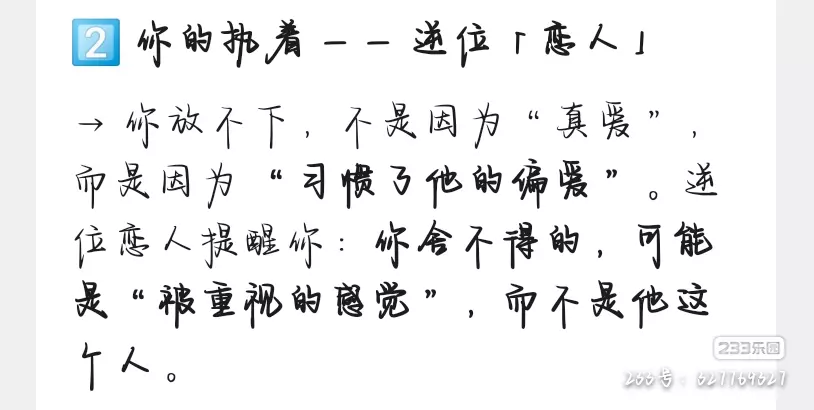 2 你的执着——逆位「恋人」
→ 你放不下，不是因为“真爱”，
而是因为“习惯了他的偏爱”。逆
位恋人提醒你：你舍不得的，可能
是“被重视的感觉”，而不是他这
个人。
233乐园
233号：327769327